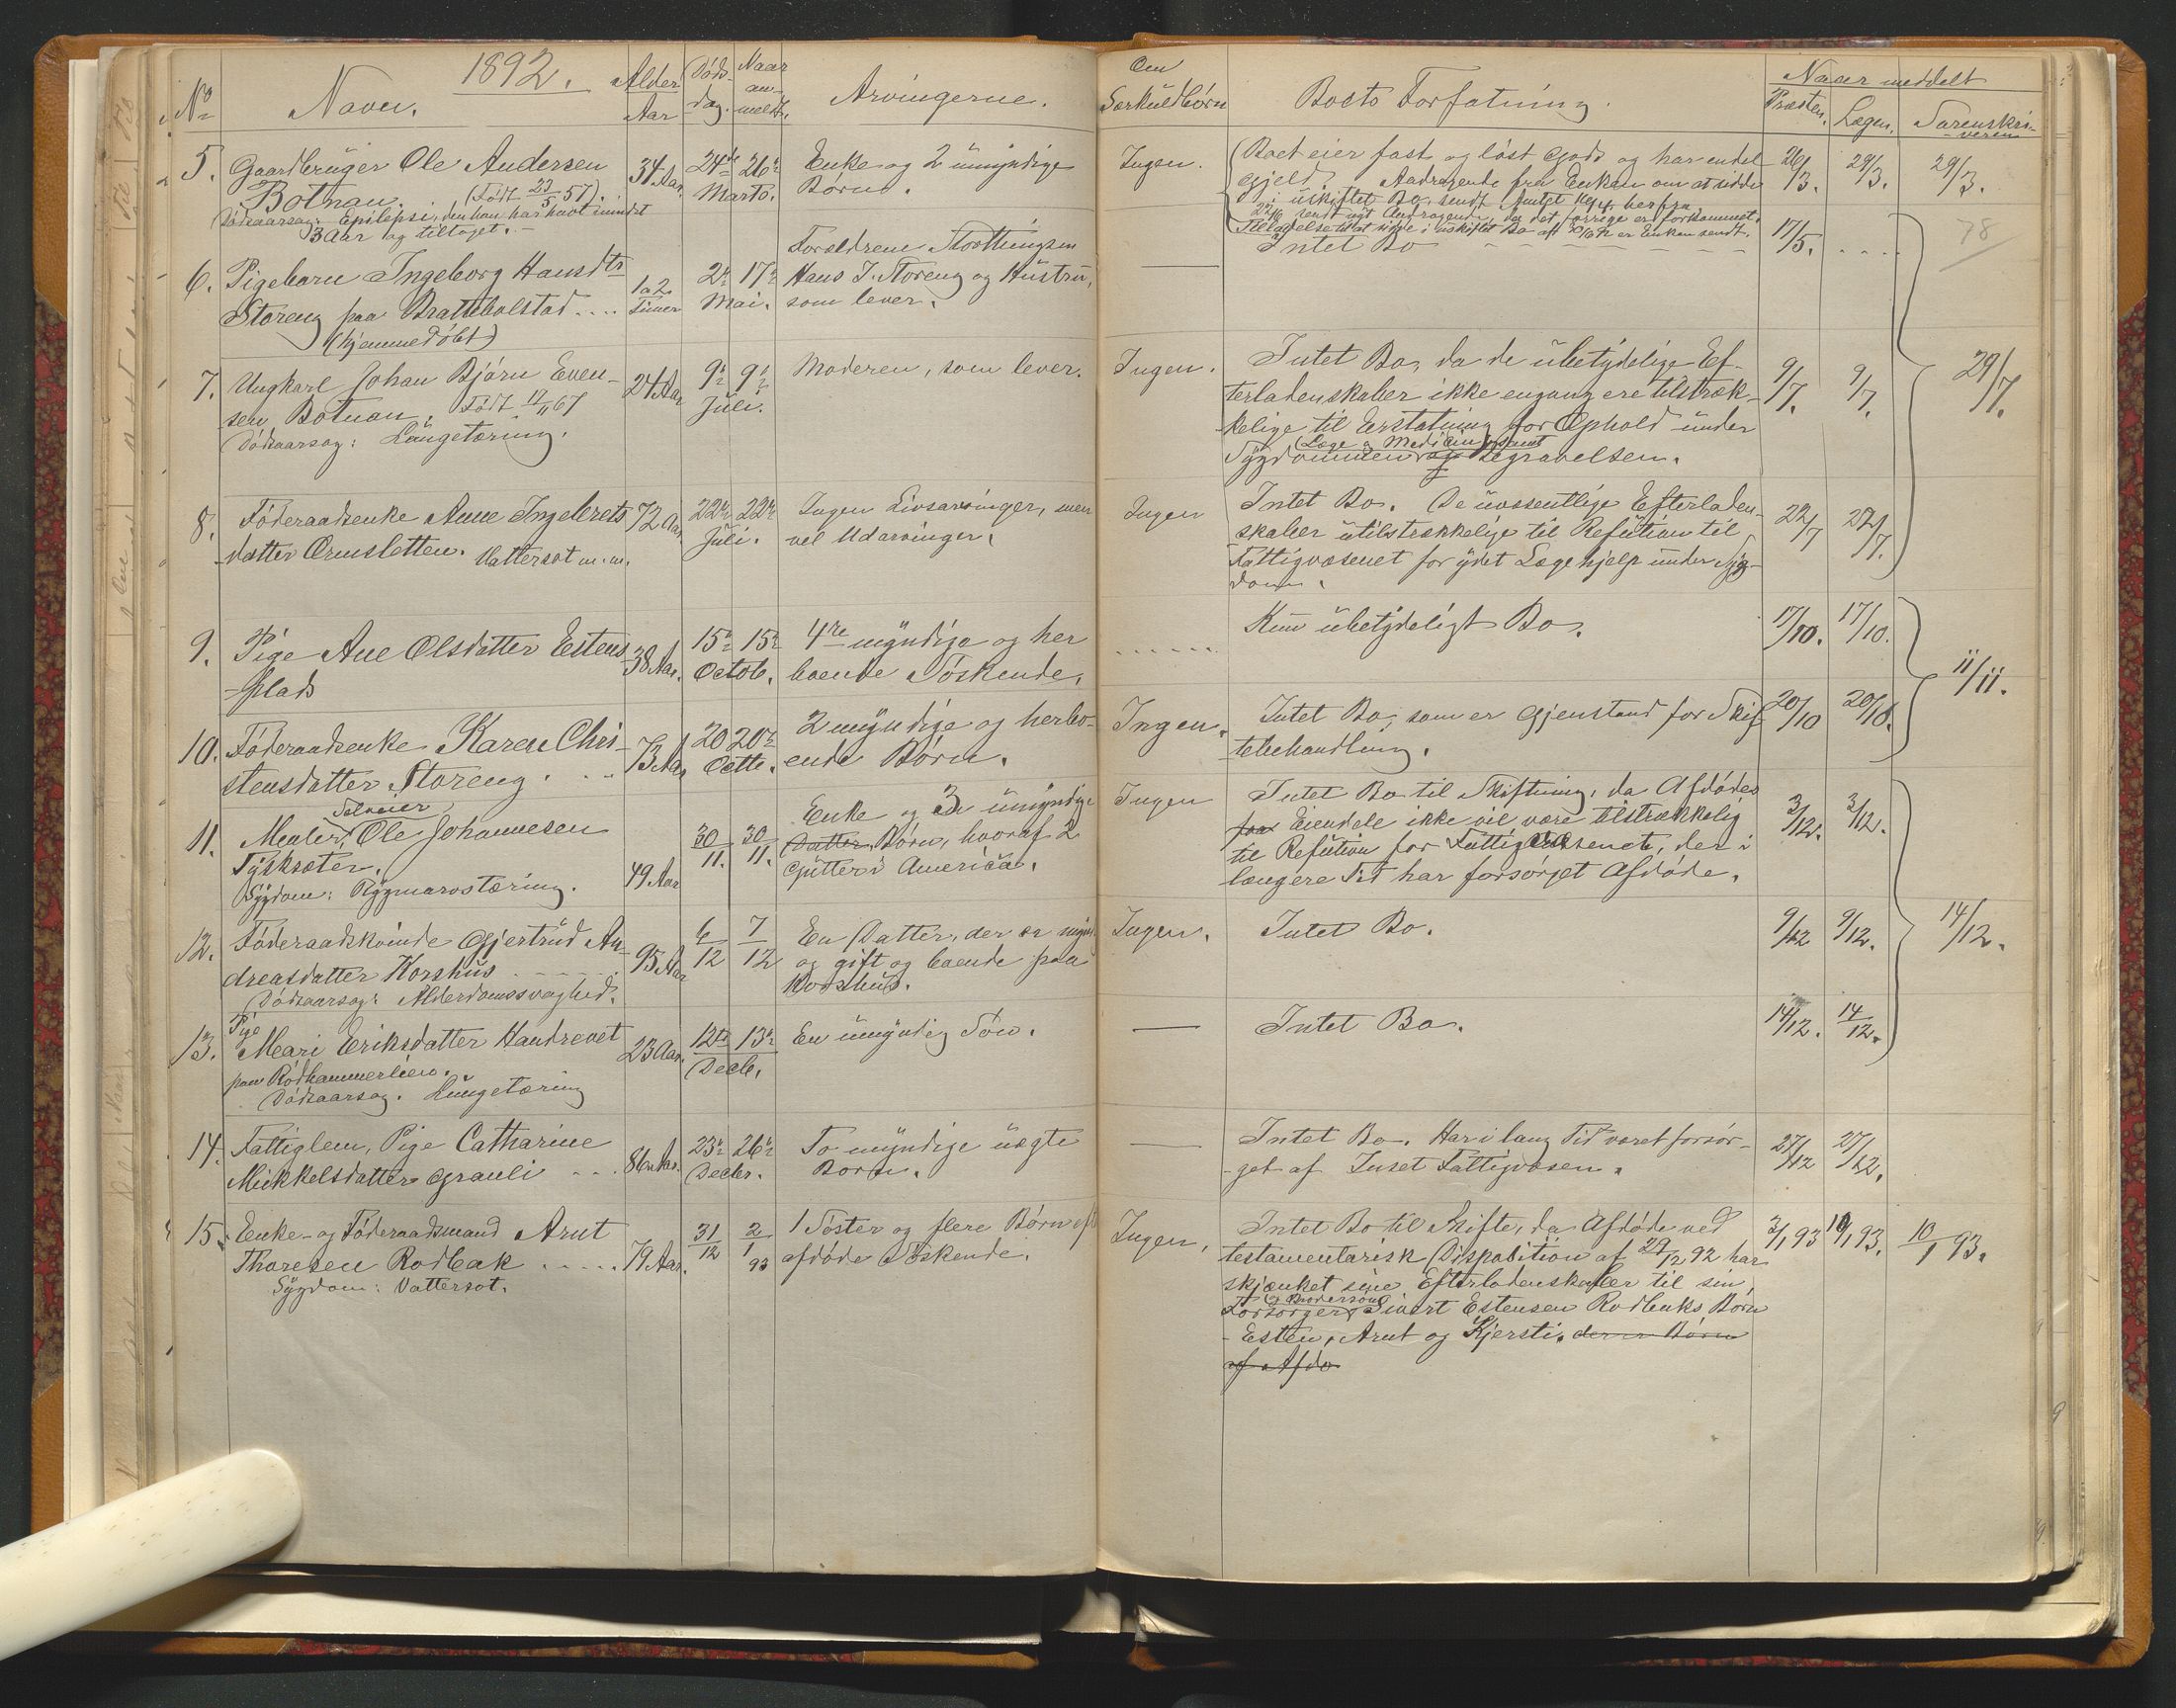 1892.
No Navn. Alder Aar Døds-dag. Naar an-meldt. Arvingerne. Om Særkuldbørn Boets Forfatning. Naar meddelt
Præsten. Lægen. Sorenskri-veren
5. Gaardbruger Ole Andersen
Botnan. (Født 23/5 57).
Dødsaarsag: Epilepsi, den han har havt mindst
3 Aar og tiltaget.
34 Aar 24de 26de Marts.
Enke og 2 umyndige
Børn.
Ingen.
Boet eier fast og løst Gods og har endel
Gjeld. Andragende fra Enken om at sidde
i uskiftet Bo, sendt Amtet
sendt nyt Andragende, da det forrige er forkommet.
Tilladelse til at sidde i uskiftet Bo af er Enken sendt.
26/3. 29/3. 29/3.
78
6. Pigebarn Ingeborg Hansdtr
Storeng paa Brattebolstad....
(hjemmedøbt)
1 a 2 Timer 2n 17n Mai.
Forældrene Storthingsm
Hans J. Storeng og Hustru,
som lever.
—
Intet Bo
17/5. ....
7. Ungkarl Johan Bjørn Even-
sen Botnan. Født 11/11 67
Dødsaarsag: Lungetæring.
24 Aar 9n 9n Juli.
Moderen, som lever.
Ingen.
Intet Bo, da de ubetydelige Ef-
terladenskaber ikke engang ere tilstræk-
kelige til Erstatning for Ophold under
(Læge & Medicin) samt
Sygdommen og Begravelsen.
9/7. 9/7. 29/7.
8. Føderaadsenke Anne Ingebrets
datter Ormsletten. Vattersot m. m.
72 Aar 22n 22n Juli.
Ingen Livsarvinger, men
vel Udarvinger.
Ingen
Intet Bo. De uvæsentlige Efterladen-
skaber utilstrækkelige til Refution til
Fattigvæsenet for ydet Lægehjelp under Syg-
dom.
22/7 22/7.
9. Pige Ane Olsdatter Estens
plads
38 Aar. 15n 15n Octob.
4re myndige og her
boende Søskende.
......
Kun ubetydeligt Bo.
17/10. 17/10. 11/11.
10. Føderaadsenke Karen Chri-
stensdatter Storeng. ...
73 Aar 20 20n Octb.
2 myndige og herbo-
ende Børn.
Ingen.
Intet Bo, som er Gjenstand for Skif-
tebehandling.
20/10 20/10.
Selveier
11. Maler, Ole Johannesen
Tysksæter.
Sygdom: Rygmarvstæring.
49 Aar 30/11. 30/11.
Enke og 3 umyndige
Datter Børn, hvoraf 2
Gutter i America.
Ingen
Intet Bo til Skiftning, da Afdødes
paa Eiendele ikke vil være tilstrækkelig
til Refution for Fattigvæsenet, der i
længere Tid har forsørget Afdøde.
3/12. 3/12.
12. Føderaadskvinde Gjertrud An-
dreasdatter Korshus
Dødsaarsag: Alderdomssvaghed.
95 Aar 6/12 7/12
En Datter, der er mynd.
og gift og boende paa
Korshus.
Ingen.
Intet Bo.
9/12 9/12. 14/12.
Pige
13. Mari Eriksdatter Haudrevet
paa Rødhammerlien.
Dødsaarsag. Lungetæring
23 Aar. 12te 13n Decb.
En umyndig Søn.
—
Intet Bo.
14/12. 14/12.
14. Fattiglem, Pige Catharine
Mikkelsdatter Grauli ...
86 Aar. 23n 26n Decbr.
To myndige uægte
Børn.
—
Intet Bo. Har i lang Tid været forsør-
get af Inset Fattigvæsen.
27/12 27/12.
15. Enke- og Føderaadsmand Arnt
Thoresen Rodbak .....
Sygdom: Vattersot.
79 Aar. 31/12 2/1 93
1 Søster og flere Børn af
afdøde Søskende.
Ingen,
Intet Bo til Skifte, da Afdøde ved
testamentarisk Disposition af 29/2 92 har
skjænket sine Efterladenskaber til sin
& Brodersøn
Forsørger, Sivert Estensen Rodbaks Børn
Esten, Arnt og Kjersti. der er Børn
af Afdø
3/1 93 10/1 93. 10/1 93.